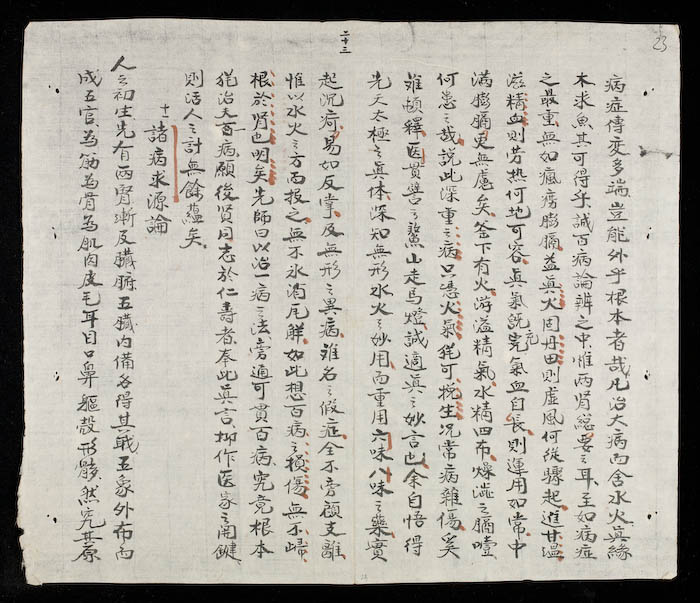 23
二十三
病症傳変多端豈能外乎根本者哉凡治大病而舍水火真緣
木求魚其可得乎誠百病論辨之中惟两腎総要之耳至如病症
之最重無如瘋癆膨膈益真火固丹田則虚風何從驟起進甘温
滋精血則劳热何地可容真氣既完充氣血自長則運用如常中
满膨膈更無慮矣釜下有火游溢精氣水精四布燥澁之膈噎
何患之哉説此深重之病只憑火氣犹可挽生况常病雜傷矣
难頓釋医貫譬之鰲山走马燈誠適真之妙言也余自悟得
先天太極之真体深知無形水火之妙用而重用六味八味之藥實
起沉疴易如反掌及無形之異病难名之假症全不旁顧支離
惟以水火之方而投之無不氷消瓦觧如此想百病之損傷無不歸
根於腎也明矣先師曰以治一病之法旁通可貫百病究竟根本
犹治夫百病願後賢同志於仁壽者奉此真言抑作医家之開鍵
則活人之計無餘蘊矣
十一諸病求源論
人之初生先有两腎漸及臟腑五臟内備各得其戠五象外布而
成五官為筋為骨為肌肉皮毛耳目口鼻軀殼形骸然究其原